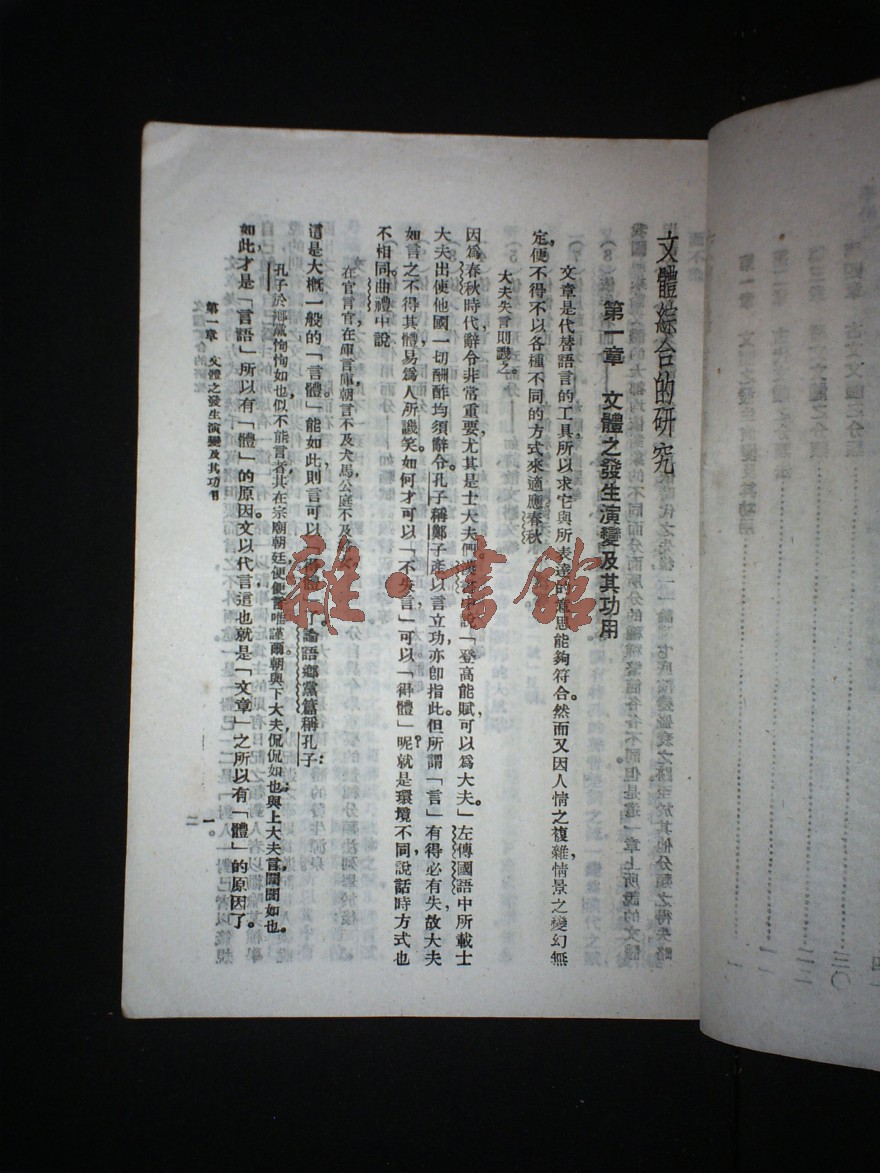 文體綜合的研究
第一章　文體之發生演變及其功用
文章是代替語言的工具，所以求它與所表達的意思能夠符合。然而又因人情之複雜，情景之變幻無
定，便不得不以各種不同的方式來適應。春秋：
大夫失言則譏之。
因爲春秋時代，辭令非常重要，尤其是士大夫們。漢書中說「登高能賦，可以爲大夫。」左傳國語中所載士
大夫出使他國，一切酬酢均須辭令。孔子稱鄭子產以言立功，亦卽指此。但所謂「言」有得必有失，故大夫
如言之不得其體，易爲人所譏笑。如何才可以「不失言」，可以「得體」呢？就是環境不同，說話時方式也
不相同。曲禮中說：
在官言官，在庫言庫，朝言不及犬馬，公庭不及
這是大概一般的「言體」，能如此則言可以「得體」了。論語鄉黨篇稱孔子：
孔子於鄉黨恂恂如也，似不能言者；其在宗廟朝廷，便便言，唯謹爾。朝與下大夫侃侃如也；與上大夫言，誾誾如也。
如此，才是「言語」所以有「體」的原因。文以代言，這也就是「文章」之所以有「體」的原因了。
第一章　文體之發生演變及其功用
一
雜·書館
第一章　文體之發生演變及其功用
一
一二
三〇
四一